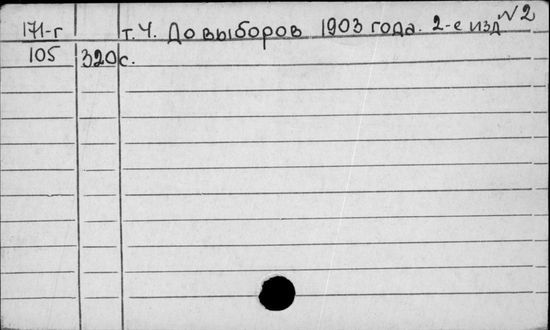 №2
171-г т.4. До выборов 1903 года. 2-е изд.
105 320 с.